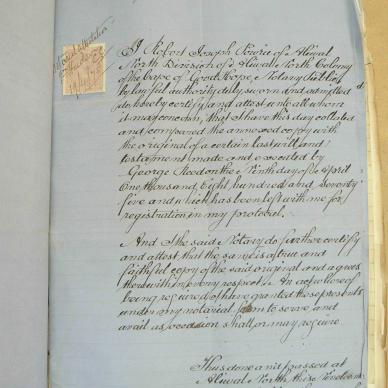 I Robert Joseph of Aliwal
North Division of Aliwal North Colony
of the Cape of Good Hope, Notary Public
by lawful authority duly sworn and admitted
do hereby certify and attest unto all whom
it may concern, that I have this day collated
and compared the annexed copy with
the original of a certain last will and
testament made and executed by
George on the Ninth day of April
One thousand, Eight hundred and Seventy
five and which has been left with me for
registration in my protocol.
And I the said Notary do further certify
and attest, that the same is a true and
faithful copy of the said original and agrees
therewith in every respect. In
being required I have granted these presents
under my notarial form to serve and
avail as occasion shall or may require
Thus done and passed at
Aliwal North this